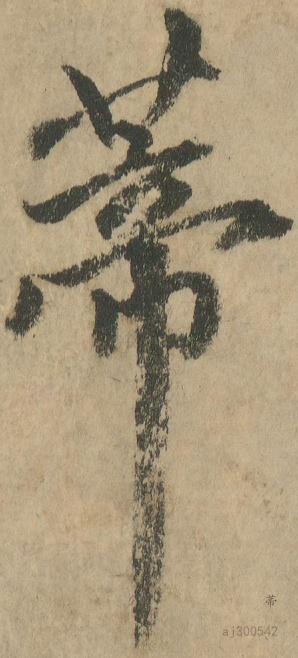 蒂
蒂
aj300542